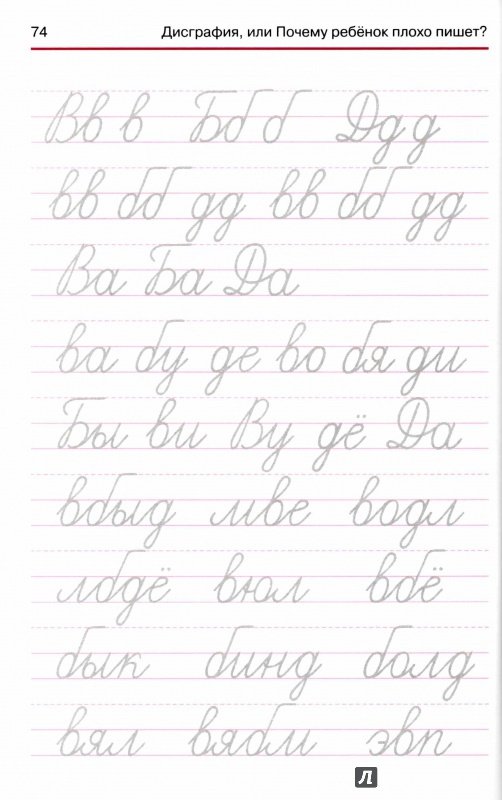 74 Дисграфия, или Почему ребёнок плохо пишет?
Вв в Бб б Дд д
вв бб дд вв бб дд
Ва Ба Да
ва бу де во бя ди
Бы ви Ву дё Да
вбыд мве водл
лбдё вюл вбё
бык бинд болд
вял вябм эвп
Л